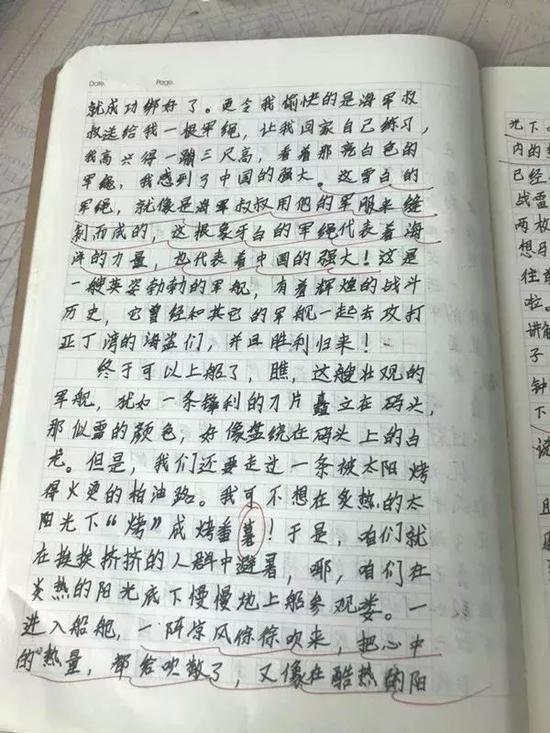 Date. Page.
就成功绑好了。更令我愉快的是海军叔
叔送给我一根军绳，让我回家自己练习，
我高兴得一蹦三尺高，看着那亮白色的
军绳，我感到了中国的强大。这雪白的
军绳，就像是海军叔叔用他的军服来缝
制而成的，这根象牙白的军绳代表着海
洋的力量，也代表着中国的强大！这是
一艘英姿勃勃的军舰，有着辉煌的战斗
历史，它曾经和其它的军舰一起去攻打
亚丁湾的海盗们，并且胜利归来！
终于可以上船了，瞧，这艘壮观的
军舰，犹如一条锋利的刀片矗立在码头，
那似雪的颜色，好像盘绕在码头上的白
光。但是，我们还要走过一条被太阳烤
得火烫的柏油路。我可不想在炙热的太
阳光下“烤”成烤番薯！于是，咱们就
在挨挨挤挤的人群中避暑，哪，咱们在
炎热的阳光底下慢慢地上船参观喽。一
进入船舱，一阵凉风徐徐吹来，把心中
的“热量，都给吹散了，又像在酷热的阳
光下
内的
已经
战雷
两枚
想马
往前
啦。
讲解
子
钟
下